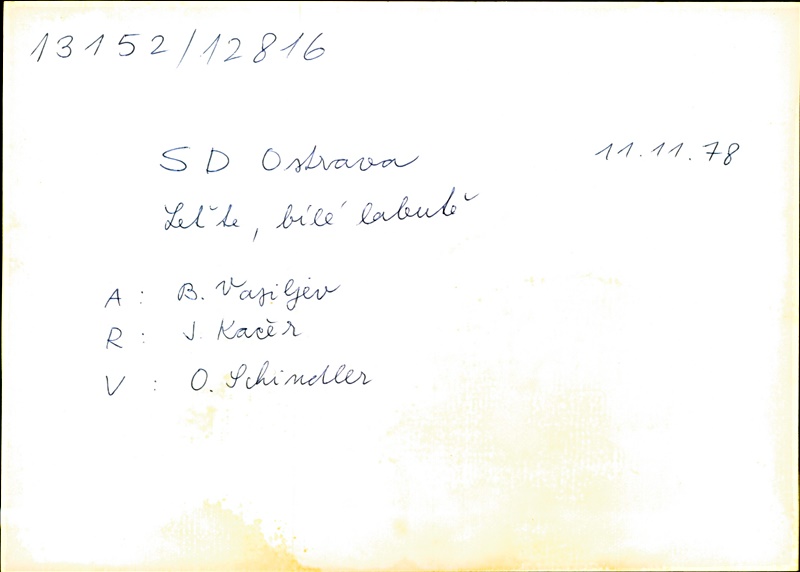 13152/12816
SD Ostrava 11.11.78
Leťte, bílé labutě
A: B. Vasiljev
R: J. Kačer
V: O. Schindler